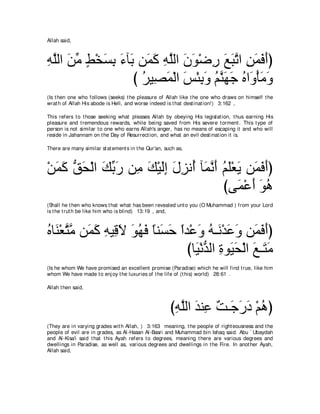 Allah said,
أَفَمَنِ اتَّبَعَ رِضْوَنَ اللَّهِ كَمَن بَآءَ بِسَخْطٍ مِّنَ اللَّهِ
وَمَأْوَاهُ جَهَنَّمُ وَبِئْسَ الْمَصِيرُ )
(Is then one who follows (seeks) the pleasure of Allah like the one who draws on himself the
wrath of Allah His abode is Hell, and worse indeed is that destination!) 3:162 ,
This refers to those seeking what pleases Allah by obeying His legislation, thus earning His
pleasure and tremendous rewards, while being saved from His severe torment. This type of
person is not similar to one who earns Allah's anger, has no means of escaping it and who will
reside in Jahannam on the Day of Resurrection, and what an evil destination it is.
There are many similar statements in the Qur'an, such as,
أَفَمَن يَعْلَمُ أَنَّمَآ أُنزِلَ إِلَيْكَ مِن رَبِّكَ الْحَقُّ كَمَنْ
هُوَ أَعْمَى)
(Shall he then who knows that what has been revealed unto you (O Muhammad ) from your Lord
is the truth be like him who is blind) 13:19 , and,
أَفَمَن وَعَدْنَـهُ وَعْداً حَسَناً فَهُوَ لاَقِيهِ كَمَن مَّتَّعْنَاهُ
مَتَـعَ الْحَيَوةِ الدُّنْيَا)
(Is he whom We have promised an excellent promise (Paradise) which he will find true, like him
whom We have made to enjoy the luxuries of the life of (this) world) 28:61 .
Allah then said,
هُمْ دَرَجَـتٌ عِندَ اللَّهِ)
(They are in varying grades with Allah, ) 3:163 meaning, the people of righteousness and the
people of evil are in grades, as Al-Hasan Al-Basri and Muhammad bin Ishaq said. Abu `Ubaydah
and Al-Kisa'i said that this Ayah refers to degrees, meaning there are various degrees and
dwellings in Paradise, as well as, various degrees and dwellings in the Fire. In another Ayah,
Allah said,